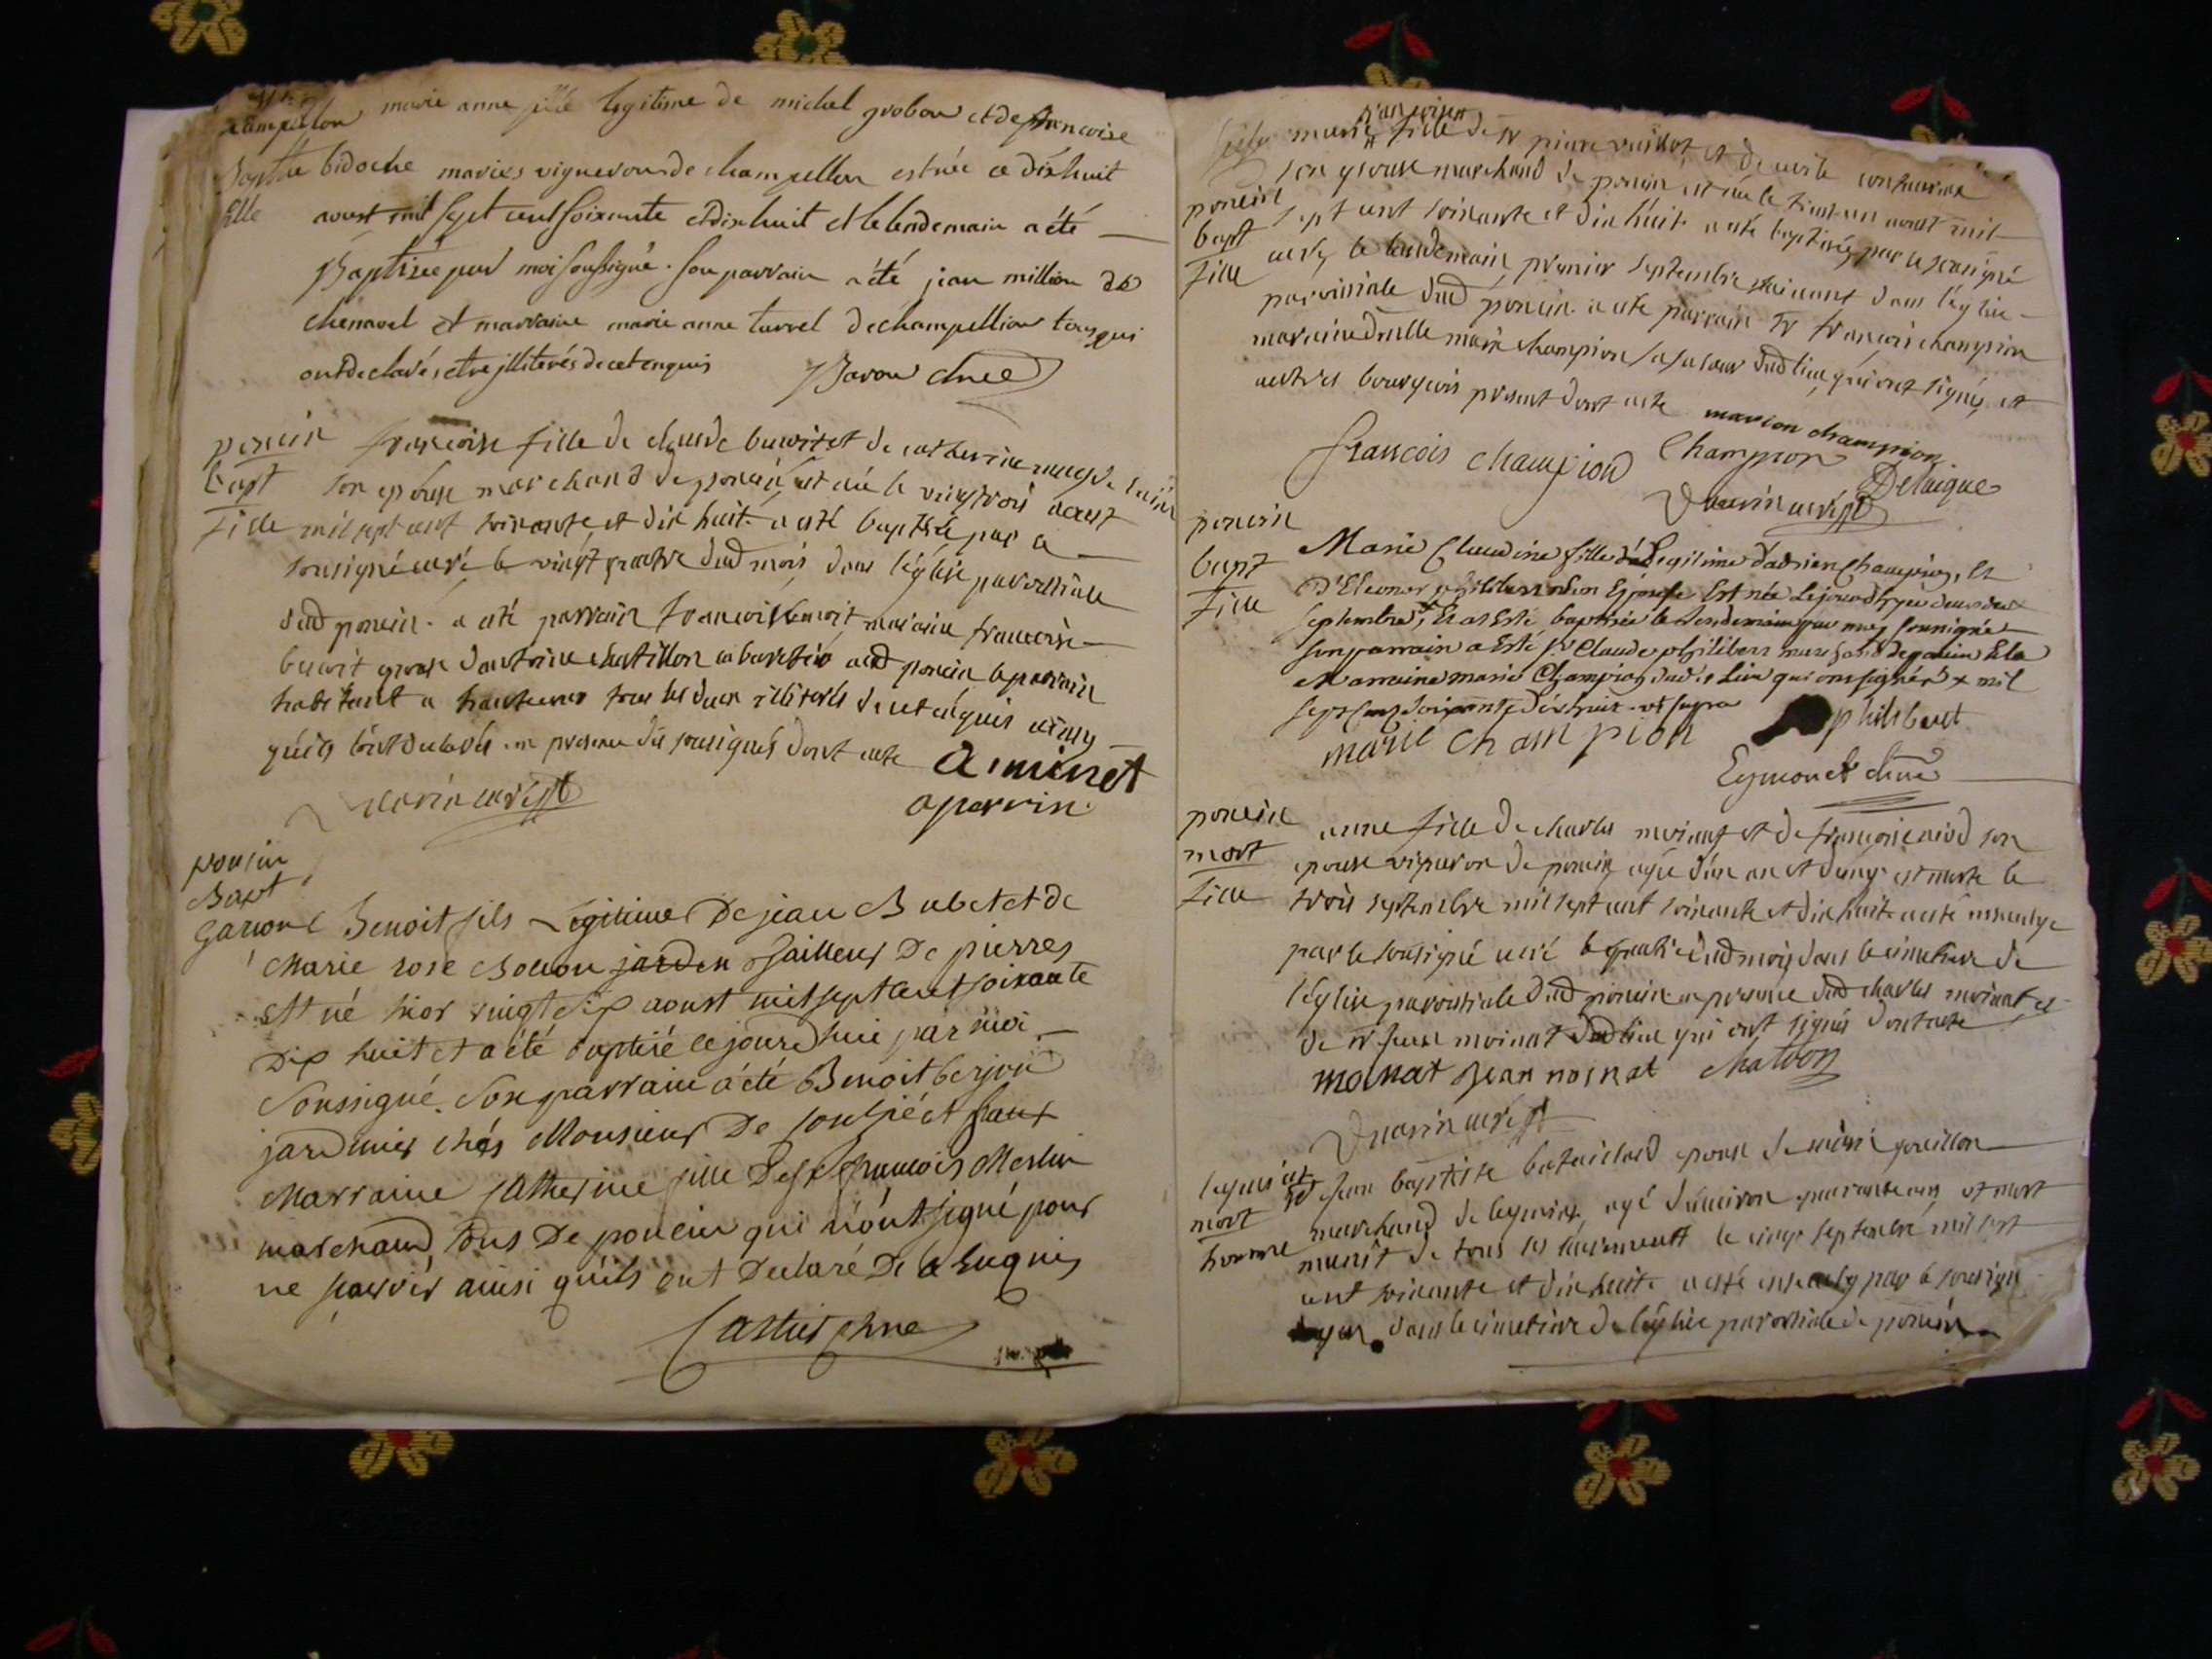 champellon marie anne fille legitime de michel grobon et de francoise
Baptle bidoche mariés vigneron de champellon est née ce dixhuit
fille aoust mil sept cent soixante et dixhuit et le lendemain a été
Baptisée par moi soussigné. son parrain a été jean million de
chenavel et marraine marie anne turrel de champellion tous qui
ont declarés etre illiterés de cet enquis Baron chnee
poncin françoise fille de claude benoit et de catherine
bapt son epouse marchand de poncin est née le vingtrois aoust
fille mil sept cent soixante et dix huit a esté baptisée par le
sousigné curé le vingt quatre dud mois dans l'église paroissiale
dud poncin. a esté parrain francois benoit, maraine francoise
benoit epouse dantoine chatillon cabaretié aud poncin le parrain
habitant a hauteville tous les deux illiterés de cet enquis ainsy
qu'ils l'ont declarés. en presence des sousignés dont acte a. minet
curé aperrin.
poncin
Bapt
Garione Benoit fils Legitime De jean Bubet et de
Marie rose Bolion jarden tailleur De pierres
est né hier vingt six aoust mil sept cent soixante
Dix huit et a été baptisé ce jourd'hui par moi
Soussigné. Son parrain a été Benoit berjon
jardinier chés Monsieur De et
Marraine Catherine fille De Sr françois Merlin
marchand, tous De poncin qui n'ont signé pour
ne sçavoir ainsi qu'ils ont Declaré De ce Enquis
Castier chne
marie francoise fille de sr pierre et de
poncin son epouse marchand de poncin est née le trent un aout mil
bapt sept cent soixante et dix huit. a esté baptisée par le sousigné
fille curé, le lendemain premier septembre suivant dans l'église
paroissiale dud poncin. a esté parrain sr françois champion
maraine dnelle marie champion sa soeur dud lieu, qui ont signés et
autres bourgeois present dont acte marion champion
francois champion Champion Delaigue
curé
poncin
bapt Marie Claudine fille Legitime d'adrien Champion, Et
fille D'Eleonor philibert son Epouse Est née Le jourd'hyer deuxieme
septembre, Et at Esté baptisée le lendemain par moy sousigné
son parrain a Esté Sr Claude philibert marchand de poncin Et la
Marraine marie Champion dud. Lieu qui ont signés x mil
sept cent soixante dixhuit. ut supra
marie champion philibert
Eymonet chne
poncin anne fille de charles moinat et de francoise son
mort epouse vigneron de poncin agée d'un an et demy est morte le
fille trois septembre mil sept cent soixante et dix huit a esté ensevelye
par le sousigné curé le quatre dud mois dans le cimetiere de
l'eglise paroissiale dud poncin en presence dud charles moinat, et
de sr jean moinat dud lieu qui ont signés dont acte
moinat Jean moinat chatron
curé
jean baptiste bataillard epoux de marie
mort marchand de agé d'environ quarante ans est mort
homme munit de tous ses sacrements le cinq septembre mil sept
cent soixante et dix huit. a esté ensevely par le sousigné
dans le cimetiere de l'église paroissiale de poncin